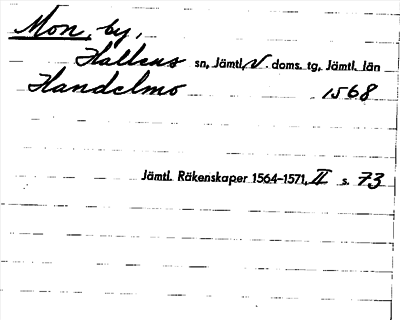 Mon, by,
Hallens sn, Jämtl. V. doms. tg, Jämtl. län
Handelmo 1568
Jämtl. Räkenskaper 1564-1571, II s. 73